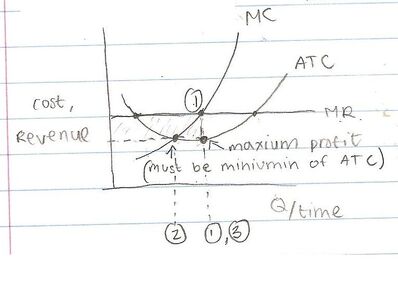 MC
ATC
①
cost,
MR
Revenue
maxium profit
(must be miniumin of ATC)
Q/time
② ①,③